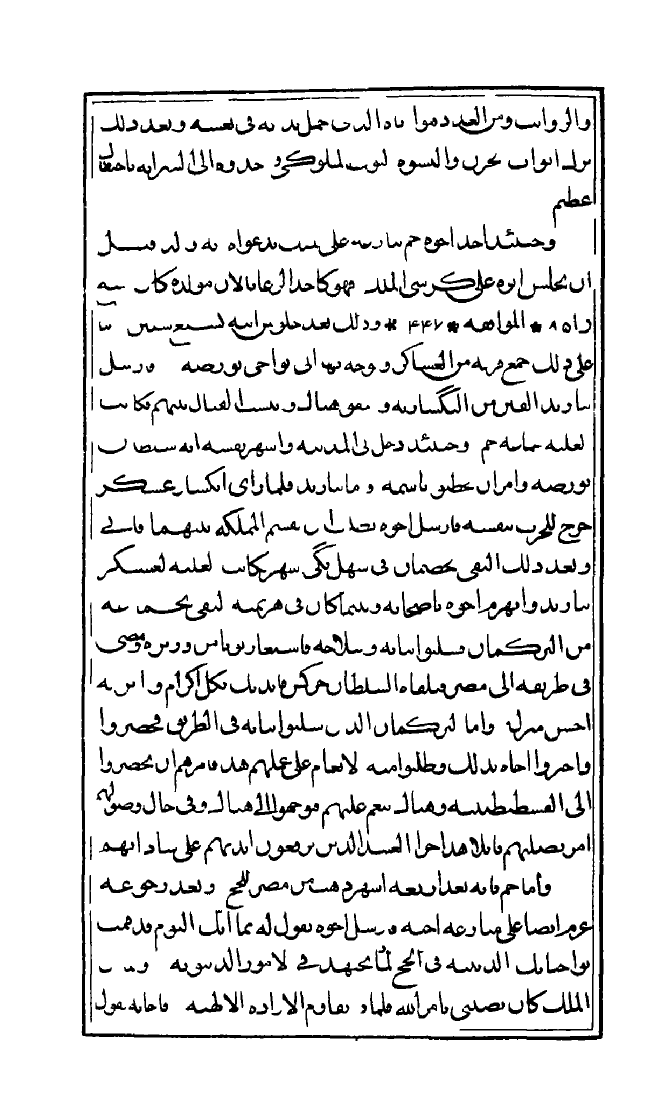 والرواتب ومن العدد دموا باه الذي حمل بديه في نفسه وبعد ذلك
اثواب والسوه حدوه الى السرايه باحتفال
عظيم
وحينئذ اخذ اخوه جم على
ان يجلس ابوه على كرسي الملك فهو كاحد الرعايا لان مولده كان سنه
* الموافقه * ٤٤٧ * وذلك بعد جلوس ابيه بسبع سنين
على ذلك جمع فرقه من العساكر وتوجه بها الى نواحي بورصه فارسل
بيازيد الفين من الينكساريه هناك القتال بينهم فكانت
لغلبه جماعه جم وحينئذ دخل الى المدينه واشهر نفسه انه سلطان
بورصه وامر ان باسمه واما بيازيد فلما راى انكسار عسكره
خرج للحرب بنفسه فارسل اخوه ان يقسم المملكه بينهما فابى
وبعد ذلك التقى الخصمان في سهل يكي شهر فكانت لغلبه لعسكر
بيازيد وانهزم اخوه باصحابه وبينما كان في هزيمته لتقى بجماعه
من التركمان فسلبوا ثيابه وسلاحه فاستعار ثوبا من وزيره ومضى
في طريقه الى مصر فتلقاه السلطان جركس قايدبك بكل اكرام وانزله
احسن منزل واما لتركمان الذين سلبوا ثيابه في الطريق فحضروا
واخبروا اخاه بذلك وطلبوا منه لانعام على عملهم هذا فامرهم ان يحضروا
الى القسطنطينيه وهناك ينعم عليهم فتوجهوا الى هناك وفي حال وصولهم
امر بصلبهم قايلا هذا جزا العبيد الذين يرفعون ايديهم على ساداتهم
واما جم فانه بعد اربعه اشهر ذهب من مصر للحج وبعد رجوعه
عزم ايضا على منازعه اخيه فارسل اخوه يقول له بما انك اليوم قد قمت
بواجباتك الدينيه في الحج لماذا تجتهد في لامور الدنيويه
الملك كان نصيبي بامر الله فلماذا تقاوم الاراده الالهيه فاجابه يقول